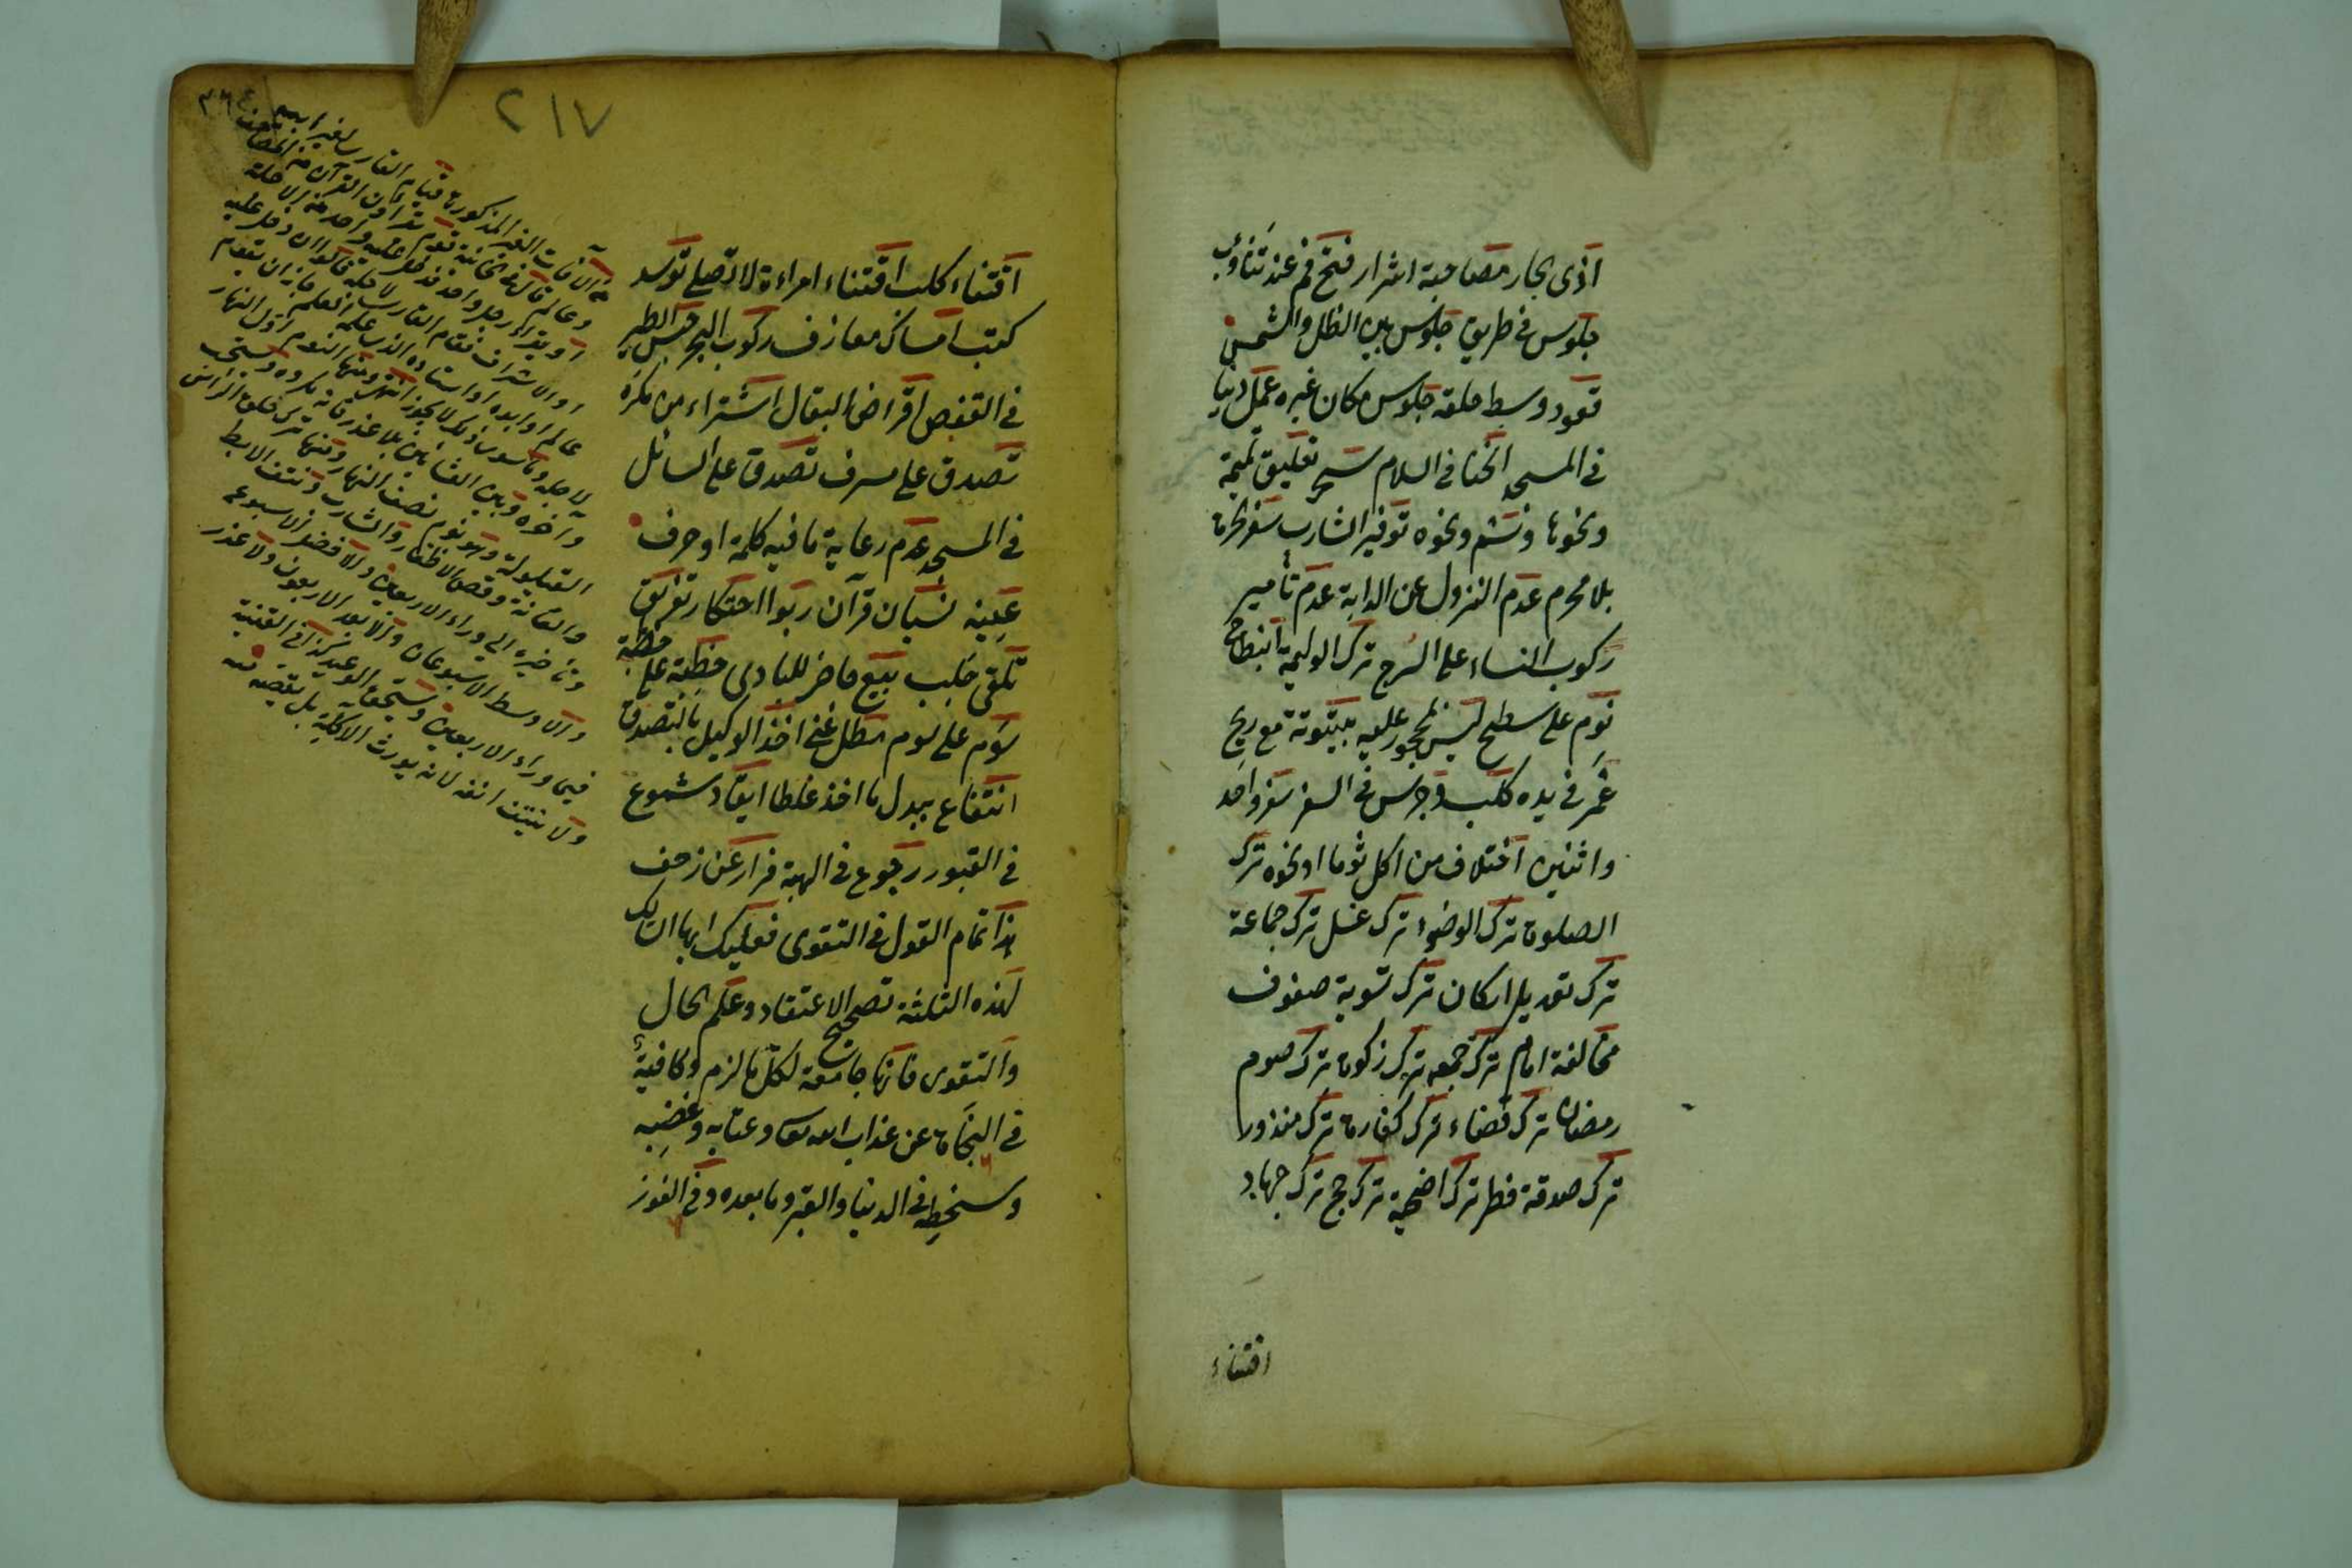 اذى بجار مصاحبة اشرار فتح فم عند تثاؤب
جلوس في طريق جلوس بين الظل والشمس
قعود وسط حلقه جلوس مكان غيره عمل دنيا
في المسجد انحنا في السلام سحر تعليق تميمة
ونحوها وشم ونحوه توفير الشارب سفر الحرة
بلا محرم عدم النزول عن الدابة عدم تأمير
ركوب النساء على السرج ترك الوليمة انبطاح
نوم على سطح ليس بمحجور عليه بيتوتة مع ريح
غمر في يده كلب وجرس في السفر سفر واحد
واثنين اختلاف من اكل ثوما او نحوه ترك
الصلوة ترك الوضوء ترك غسل ترك جماعة
ترك تعديل اركان ترك تسوية صفوف
مخالفة امام ترك جمعه ترك زكوة ترك صوم
رمضان ترك قضاء ترك كفارة ترك منذور
ترك صدقة فطر ترك اضحية ترك حج ترك جهاد
اقتناء
٢١٧
اقتناء كلب اقتناء امراءة لا تصلى توسد
كتب امساك معازف ركوب البحر حبس الطير
في القفص اقراض البقال اشتراء من مكره
تصدق على مسرف تصدق على السائل
في المسجد عدم رعاية ما فيه كلمة او حرف
عينه نسيان قرآن ربوا احتكار تفريق
تلقى جلب بيع حاضر للبادى خطبة على خطبة
سوم على سوم مطل غنى اخذ الوكيل بالتصدق
انتفاع ببدل ما اخذ غلطا ايقاد شموع
في القبور رجوع في الهبة فرار عن زحف
هذا تمام القول في التقوى فعليك ايها السالك
لهذه الثلثة تصحيح الاعتقاد وعلم الحال
والتقوى فانها جامعة لكل ما لزم وكافية
في النجاة عن عذاب الله تعالى وعتابه وغضبه
وسخطه في الدنيا والقبر وما بعده وفي الفوز
من الآفات الغير المذكورة قيام القارئ لغير
او يقرأ رجل واحد فدخل عليه واحد من الاجلة
او الاشراف فقام القارئ لاجله قالوا ان دخل عليه
عالم او ابوه او استاذه الذي علمه العلم جاز ان يقوم
لاجله وما سوى ذلك لا يجوز انتهى ومنها النوم اول النهار
وآخره وبين العشائين بلا عذر فانه مكروه ويستحب
القيلولة وهو نوم نصف النهار ومنها ترك حلق الرأس
والعانة وقص الاظفار والشارب ونتف الابط
وتأخيره الى وراء الاربعين والافضل الاسبوع
والاوسط الاسبوعان والابعد الاربعون ولا عذر
فيما وراء الاربعين ويستحق الوعيد كذا في القنية
ولا ينتف انفه لانه يورث الاكلة بل يقصه منه